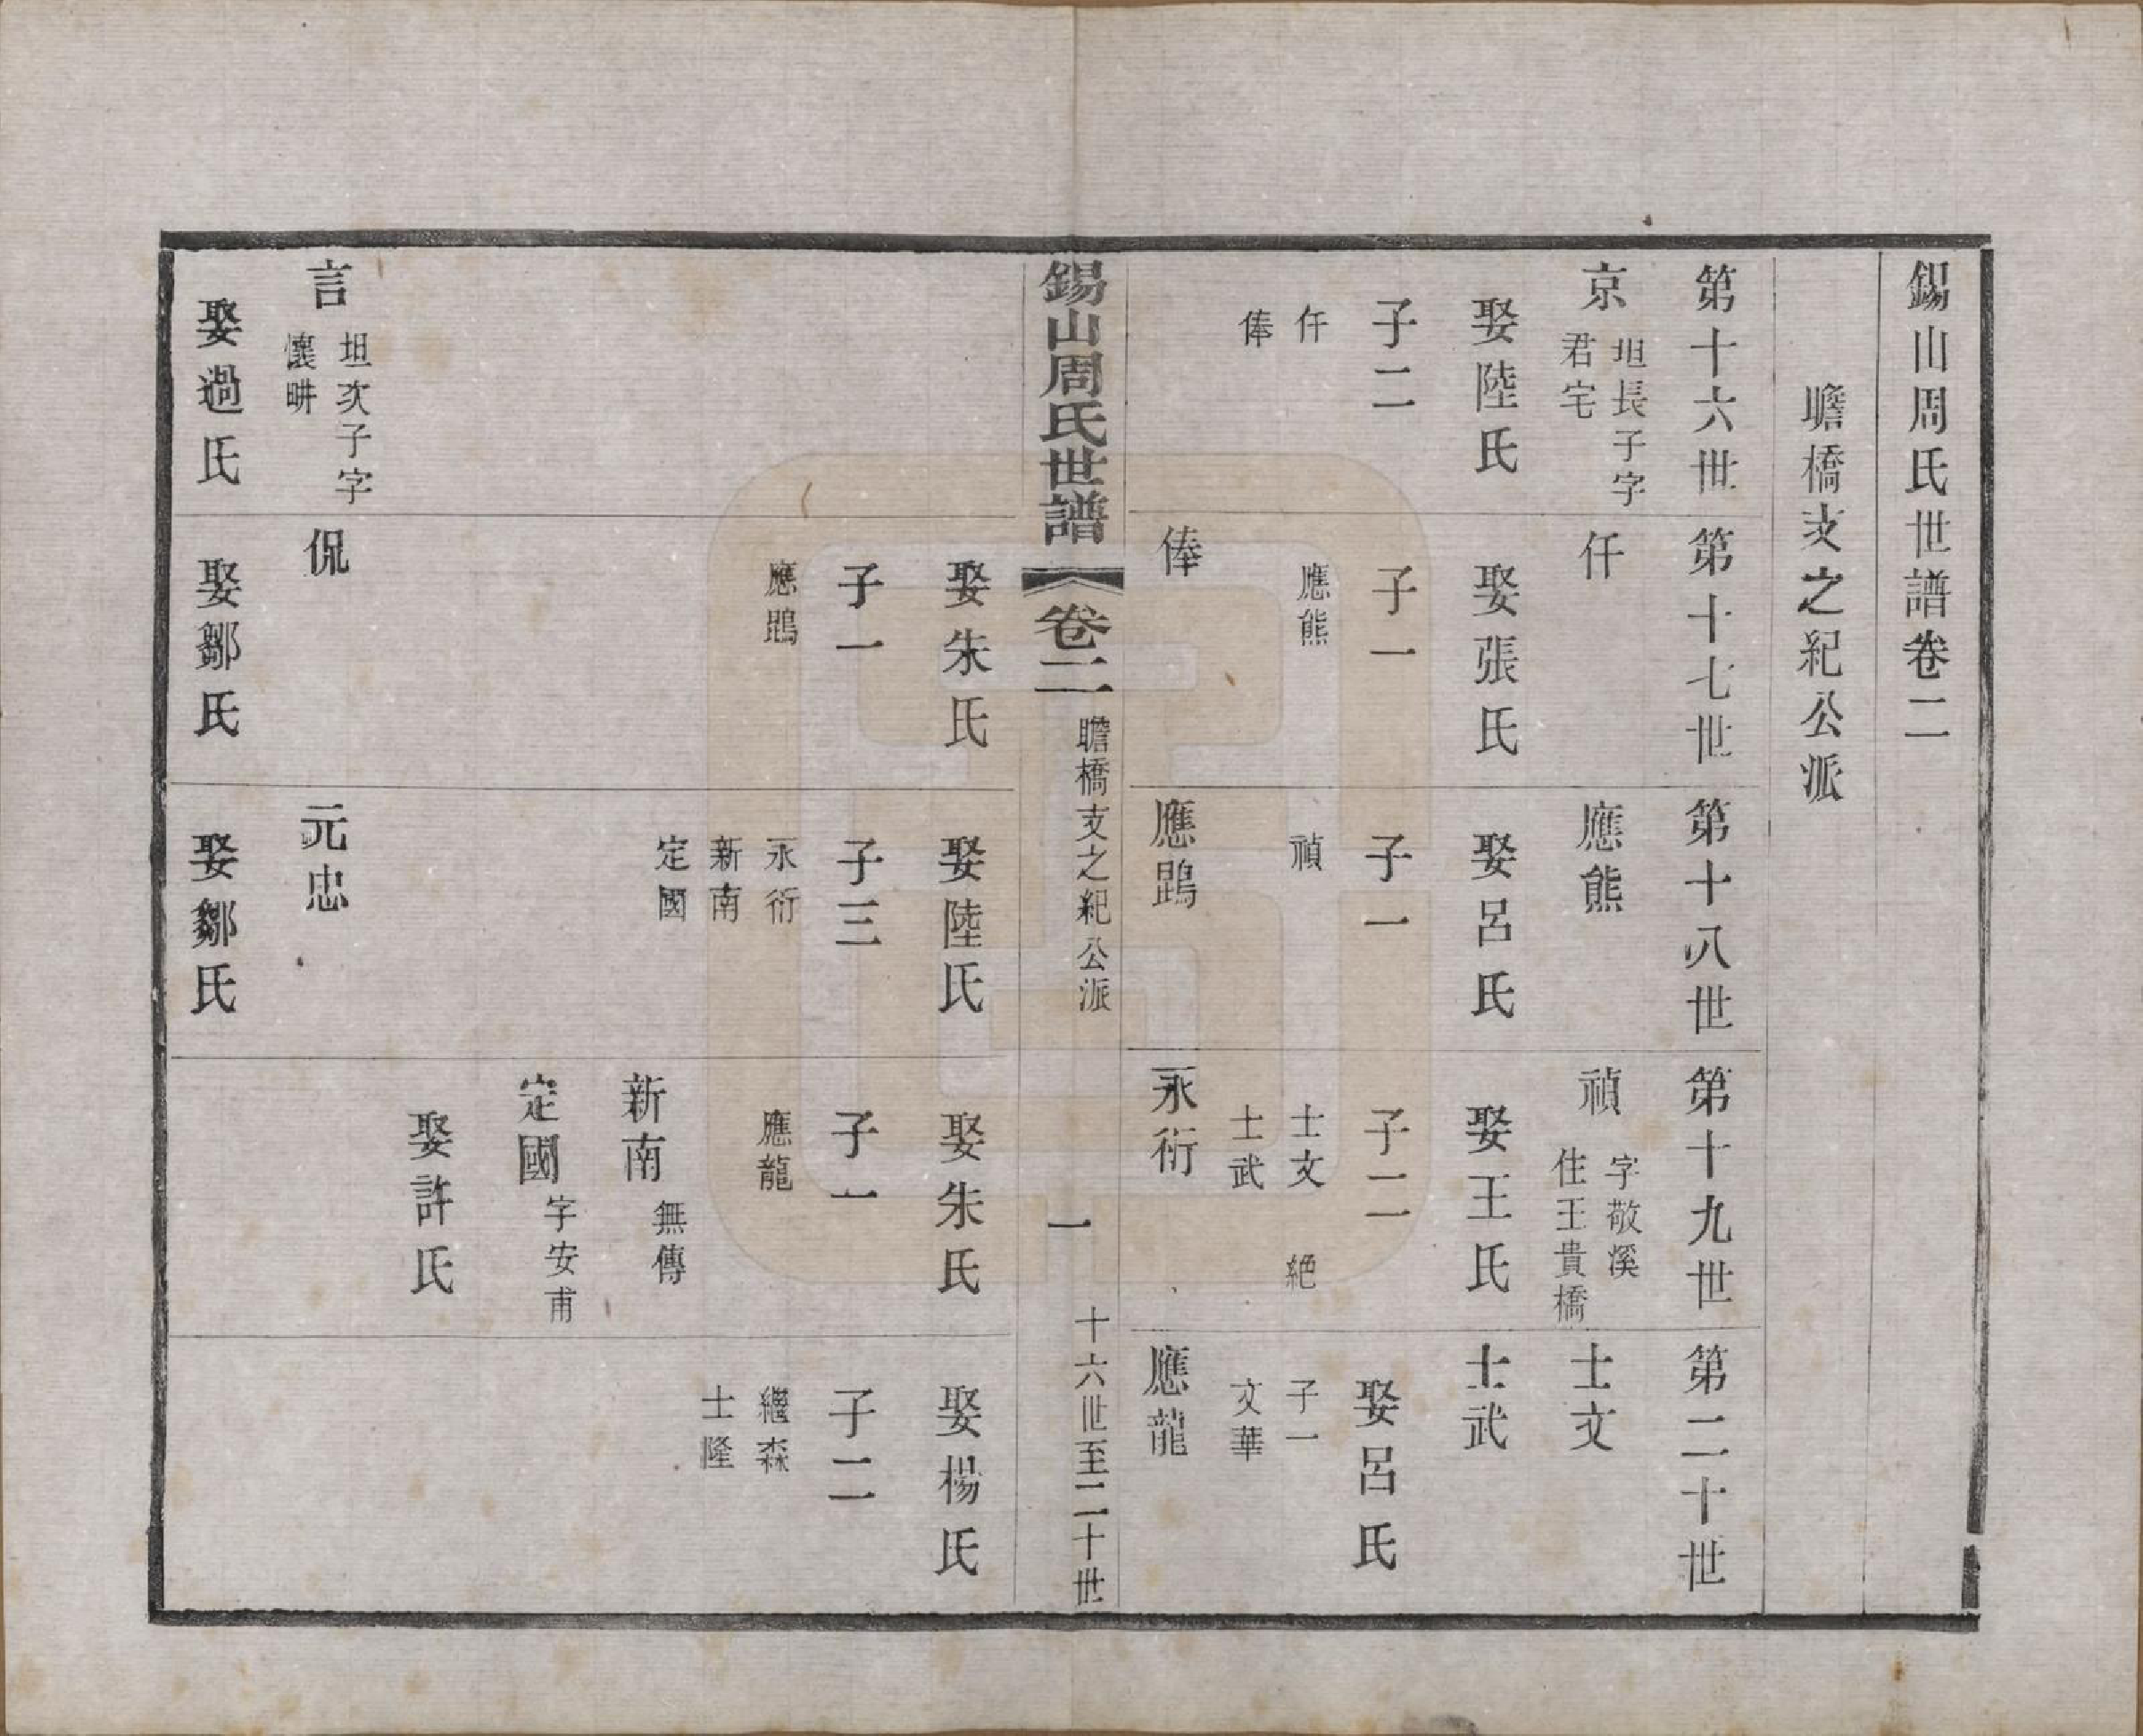 錫山周氏世譜卷二
瞻橋支之紀公派
第十六世
京
坦長子字
君宅
娶陸氏
子二
仟
俸
第十七世
仟
娶張氏
子一
應熊
俸
第十八世
應熊
娶呂氏
子一
禎
應鵾
第十九世
禎
字敬溪
住王貴橋
娶王氏
子二
士文 絕
士武
永衍
第二十世
士文
士武
娶呂氏
子一
文華
應龍
錫山周氏世譜
卷二
瞻橋支之紀公派
一
十六世至二十世
言
坦次子字
懷畊
娶過氏
娶朱氏
子一
應鵾
侃
娶鄒氏
娶陸氏
子三
永衍
新南
定國
元忠
娶鄒氏
娶朱氏
子一
應龍
新南
無傳
定國
字安甫
娶許氏
娶楊氏
子二
繼森
士隆